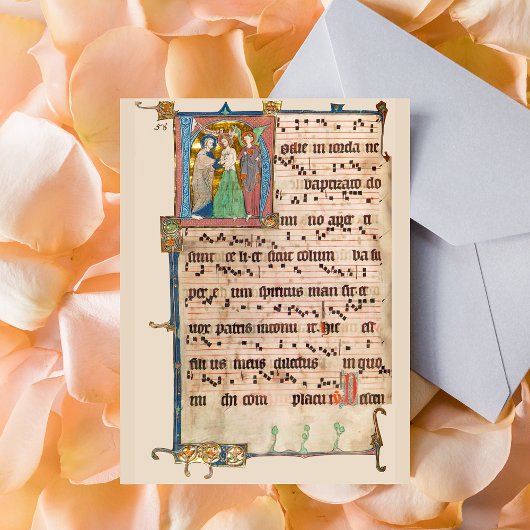 58
odie in iorda ne
baptizato do
mi no aper ti
sunt ce li et sicut colum ba su
per e um spiritus man sit et
vox patris intonu it hic est
fili us meus dilectus in quo
mi chi com placu it